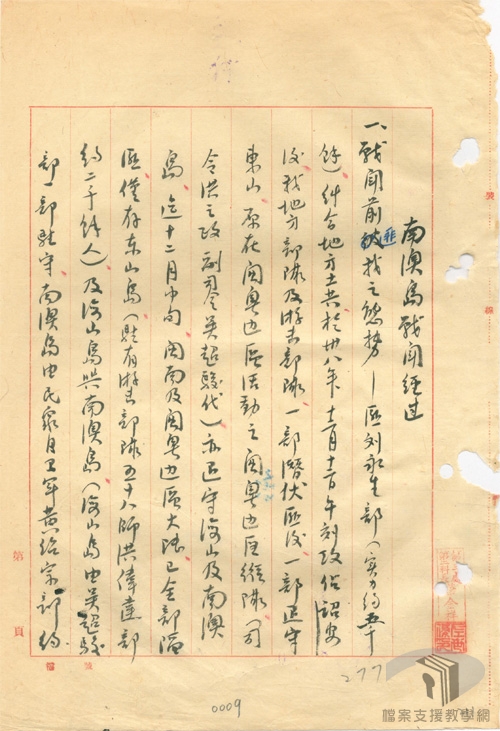 南澳島戰鬪經过
一、戰鬪前匪我之態勢—匪刘永生部（实力約五千
餘）糾合地方土共於卅八年十一月十一日午刻攻佔詔安
後我地方部隊及游击部隊一部潛伏匪後一部退守
東山原在闽粤边區活動之闽粤边区縱隊（司
令洪之政副司令吳超駿代）亦退守海山及南澳
島迄十二月中旬闽南及闽粤边區大陆已全部淪
匪僅存东山島（財有游击部隊五十八師洪偉達部
約二千餘人）及海山島與南澳島（海山島由吴超駿
部一部駐守南澳島由民衆自卫軍黄紹宗部約
第 頁
277
0009
檔案支援教學網